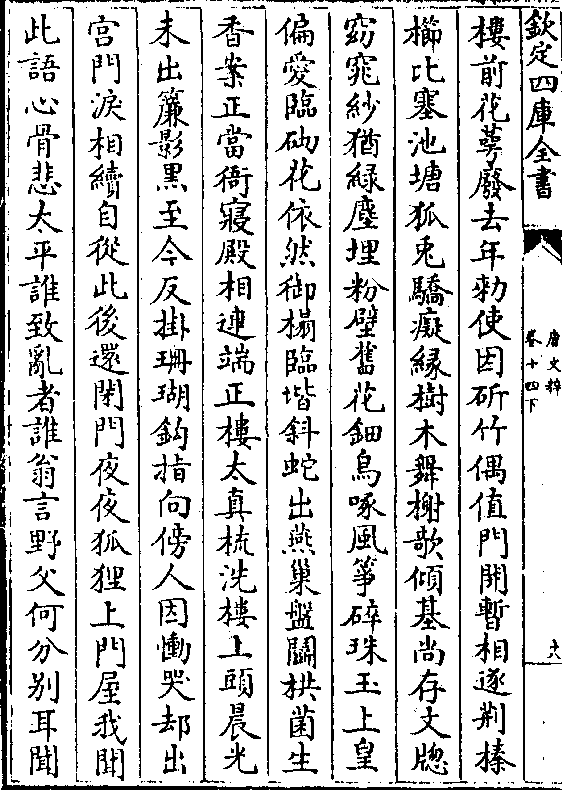 欽定四庫全書
唐文粹
卷十四下
樓前花萼廢去年勅使因斫竹偶值門開暫相逐荆榛
櫛比塞池塘狐兎驕癡緣樹木舞榭歌傾基尚存文牕
窈窕紗猶緑塵埋粉壁舊花鈿鳥啄風箏碎珠玉上皇
偏愛臨砌花依然御榻臨堦斜蛇出燕巢盤鬭栱菌生
香案正當衙寢殿相連端正樓太真梳洗樓上頭晨光
未出簾影黑至今反掛珊瑚鈎指向傍人因慟哭却出
宮門淚相續自從此後還閉門夜夜狐狸上門屋我聞
此語心骨悲太平誰致亂者誰翁言野父何分别耳聞